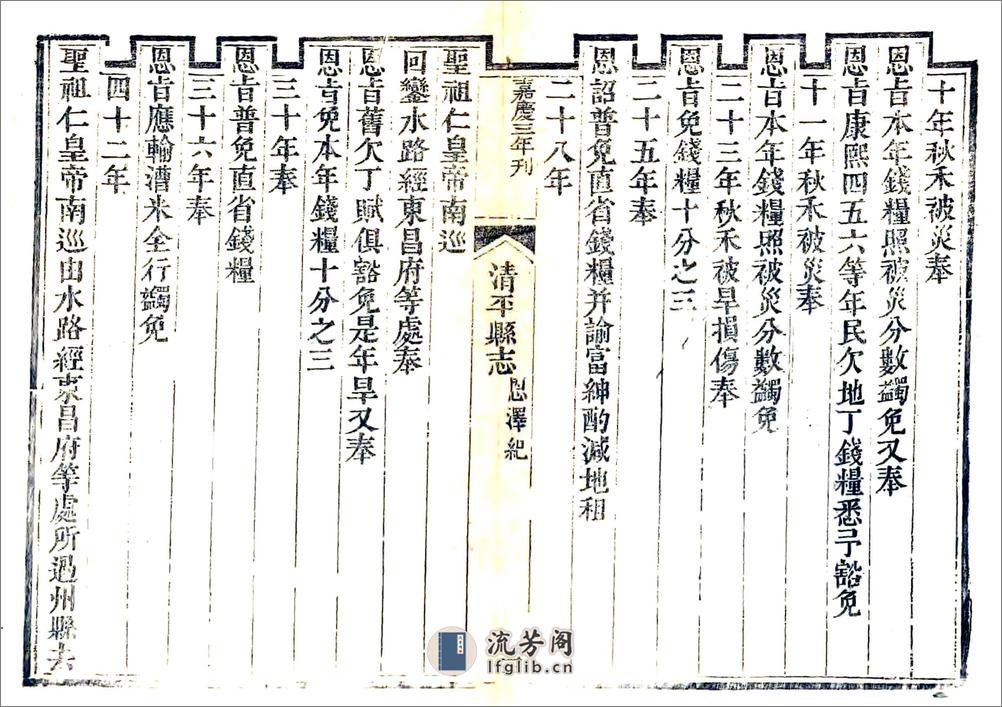 十年秋禾被災奉
恩旨本年錢糧照被災分數蠲免又奉
恩旨康熙四五六等年民欠地丁錢糧悉予豁免
十一年秋禾被災奉
恩旨本年錢糧照被災分數蠲免
二十三年秋禾被旱損傷奉
恩旨免錢糧十分之三
二十五年奉
恩詔普免直省錢糧并諭富紳酌減地租
二十八年
嘉慶三年刊
清平縣志
恩澤紀
聖祖仁皇帝南巡
回鑾水路經東昌府等處奉
恩旨舊欠丁賦俱豁免是年旱又奉
恩旨免本年錢糧十分之三
三十年奉
恩旨普免直省錢糧
三十六年奉
恩旨應輸漕米全行蠲免
四十二年
聖祖仁皇帝南巡由水路經東昌府等處所過州縣去
流芳阁
lfglib.cn